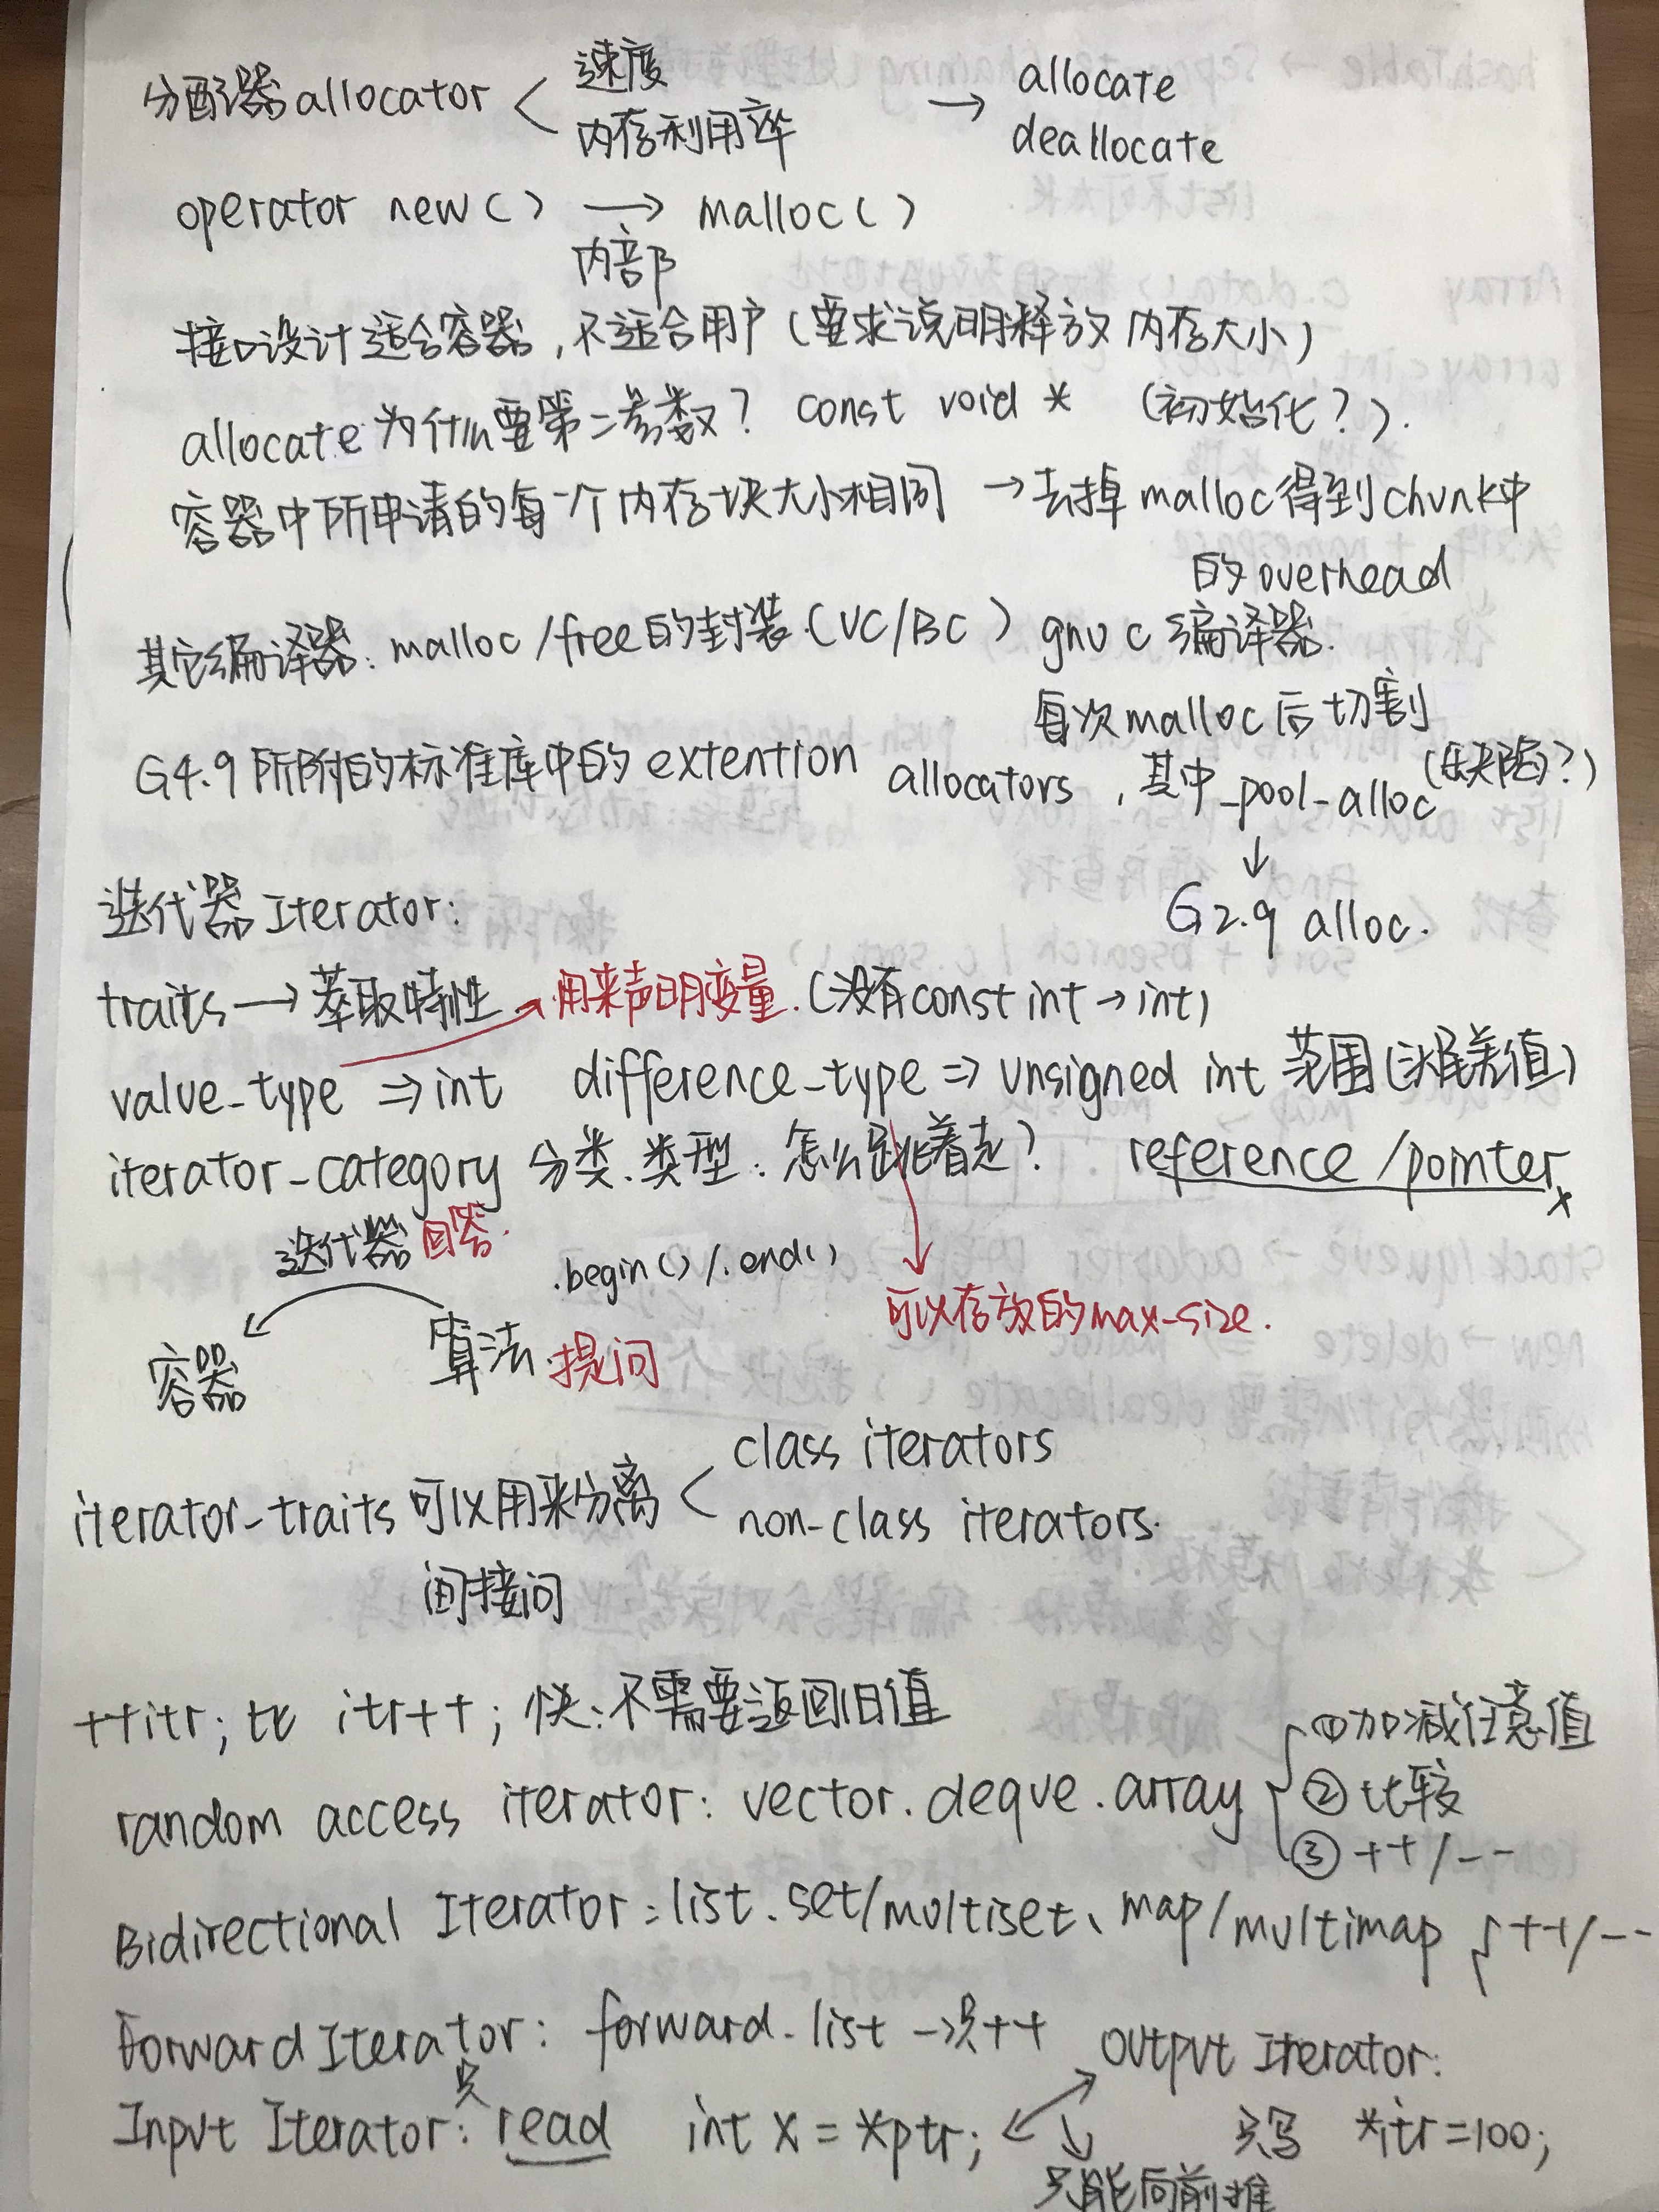 分配器 allocator < 速度 → allocate
内存利用率 deallocate
operator new() → malloc()
内部
接口设计适合容器,不适合用户(要求说明释放内存大小)
allocate 为什么要第二参数? const void * (初始化?).
容器中所申请的每一个内存块大小相同 → 去掉malloc得到chunk中
的overhead
其它编译器: malloc/free的封装.(VC/BC) gnu c 编译器.
每次malloc后切割
G4.9 所附的标准库中的 extention allocators , 其中_pool_alloc (缺陷?)
↓
G2.9 alloc.
迭代器 Iterator:
traits → 萃取特性 用来声明变量.(没有const int → int)
value_type ⇒ int difference_type ⇒ unsigned int 范围(求差值)
iterator_category 分类.类型: 怎么跳着走? reference /pointer x
迭代器 回答. .begin() /.end()
可以存放的max-size.
容器 算法.提问
iterator_traits 可以用来分离 < class iterators
non-class iterators.
间接问
++itr; 比 itr++; 快:不需要返回旧值
random access iterator: vector.deque.array { ①加减任意值
②比较
③ ++/--
Bidirectional Iterator: list.set/multiset、map/multimap { ++/--
Forward Iterator: forward_list → 只++ Output Iterator:
Input Iterator: 只 read int x = *ptr; 只写 *itr=100;
只能向前推